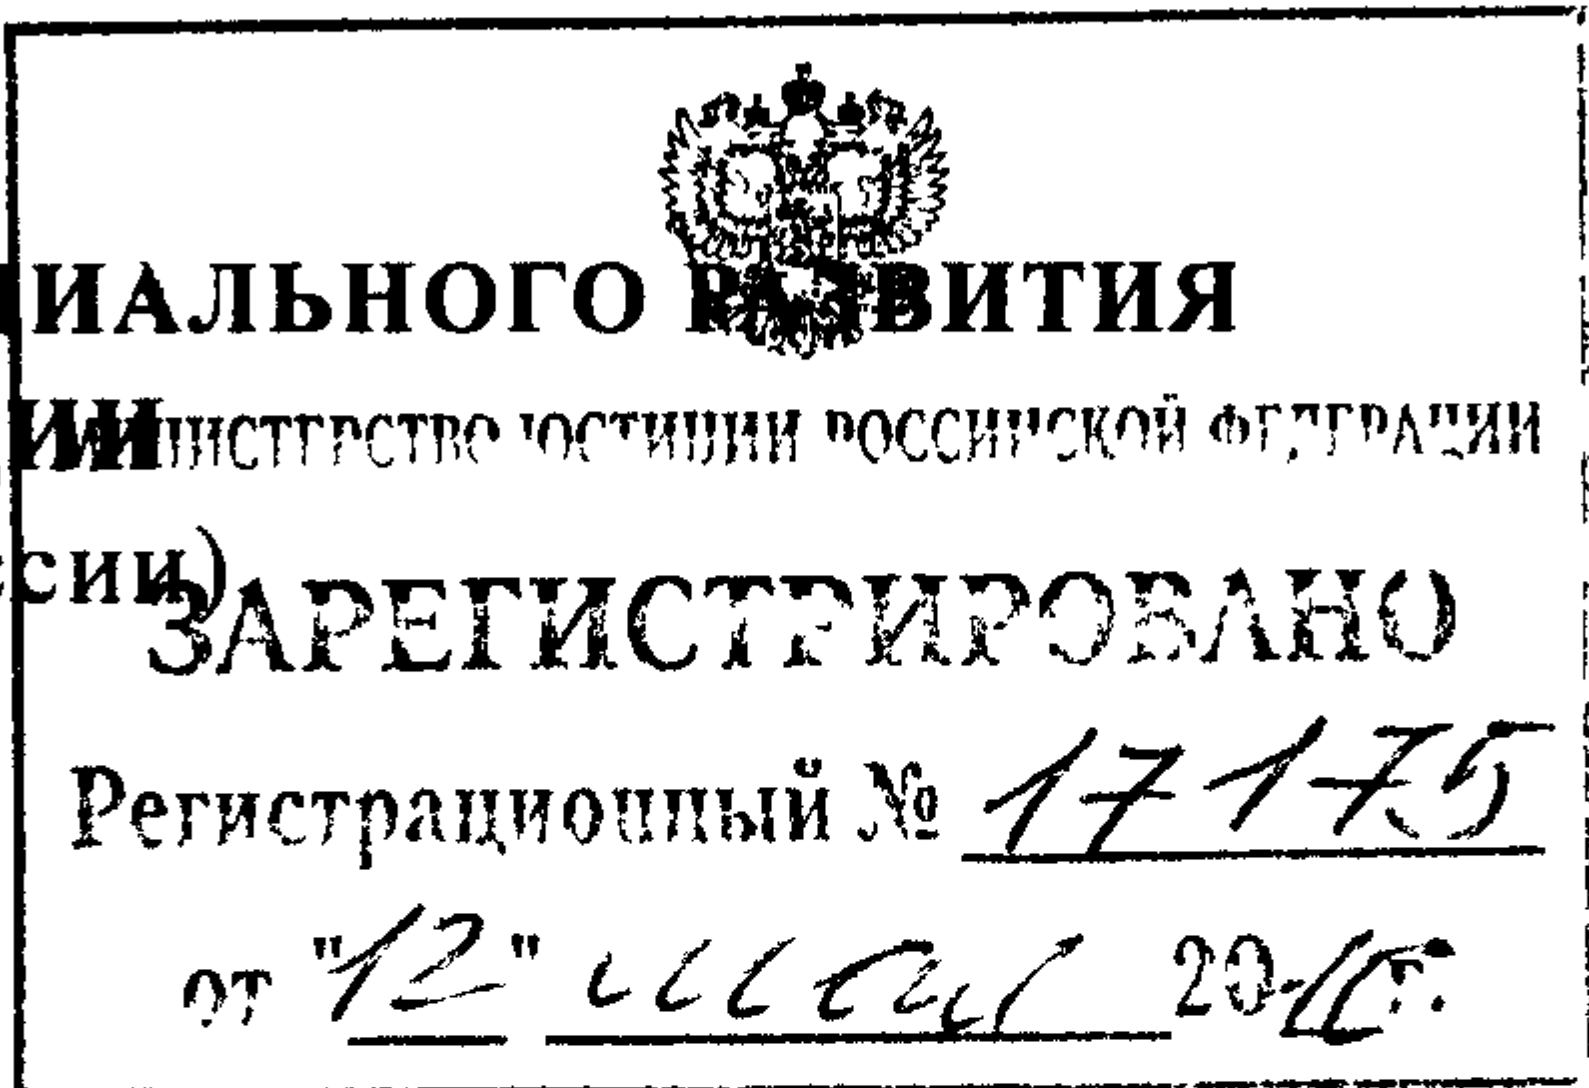 ИАЛЬНОГО РАЗВИТИЯ
ИИ
МИНИСТЕРСТВО ЮСТИЦИИ РОССИЙСКОЙ ФЕДЕРАЦИИ
сии)
ЗАРЕГИСТРИРОВАНО
Регистрационный № 17175
от "12" мая 20 г.